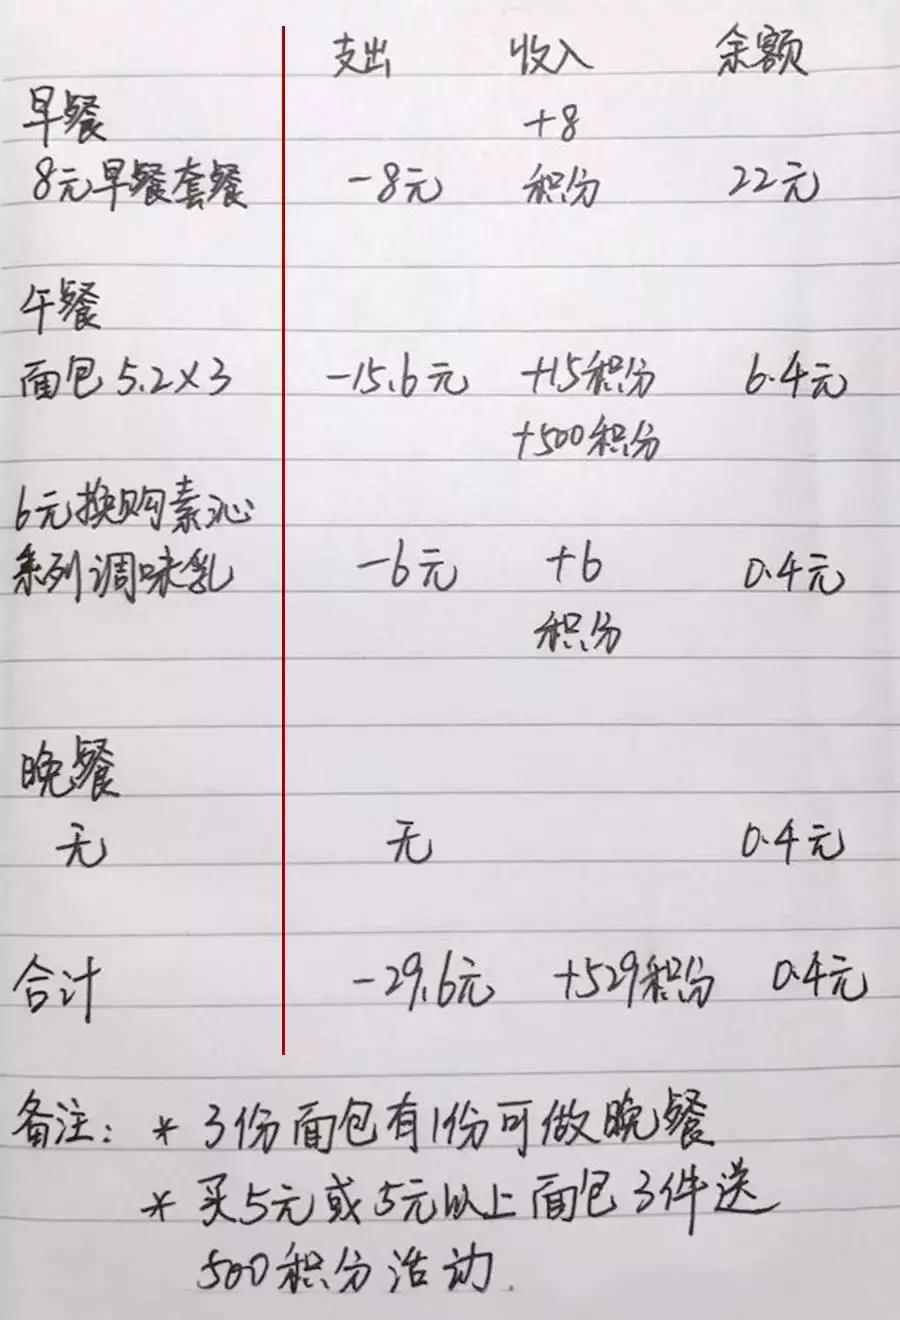 支出 收入 余额
早餐 +8
8元早餐套餐 -8元 积分 22元
午餐
面包 5.2×3 -15.6元 +15积分 6.4元
+500积分
6元换购素沁
系列调味乳 -6元 +6 0.4元
积分
晚餐
无 无 0.4元
合计 -29.6元 +529积分 0.4元
备注: * 3份面包有1份可做晚餐
* 买5元或5元以上面包3件送
500积分活动.